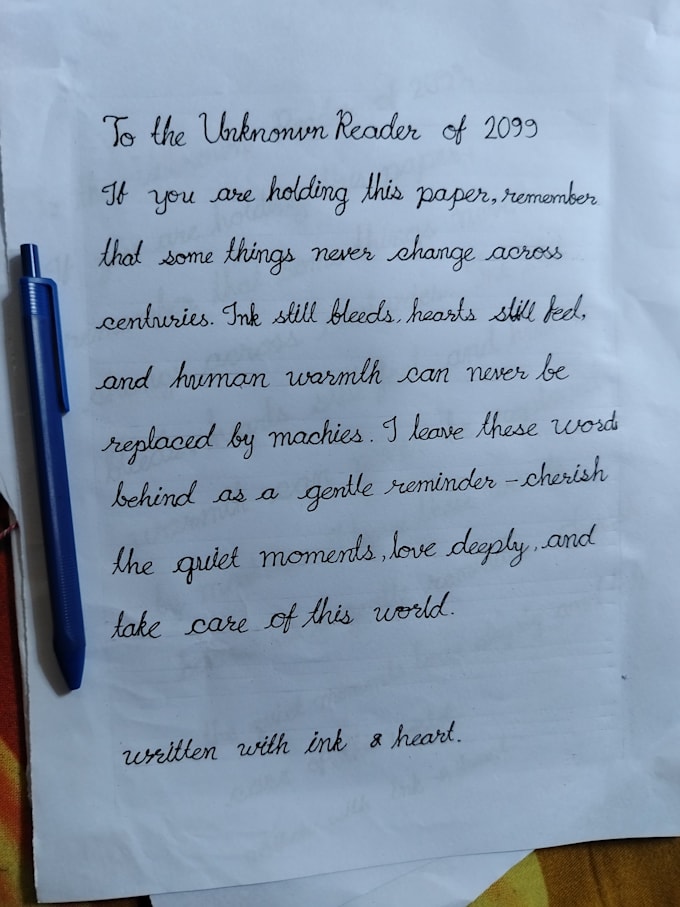 To the Unknonvn Reader of 2099
If you are holding this paper, remember
that some things never change across
centuries. Ink still bleeds, hearts still feel,
and human warmth can never be
replaced by machies. I leave these words
behind as a gentle reminder – cherish
the quiet moments, love deeply, and
take care of this world.
written with ink & heart.